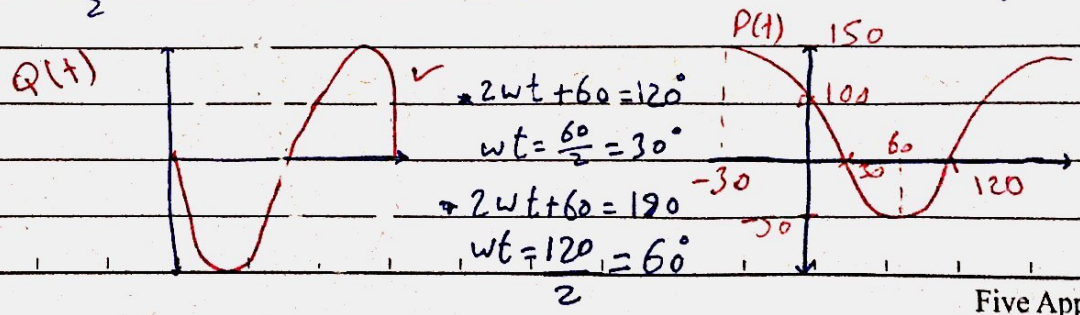 2
Q(t)
*2wt+60=120°
wt=60/2=30°
*2wt+60=180
wt=120/2=60°
P(t)
150
100
60
-30
30
120
-50
Five App